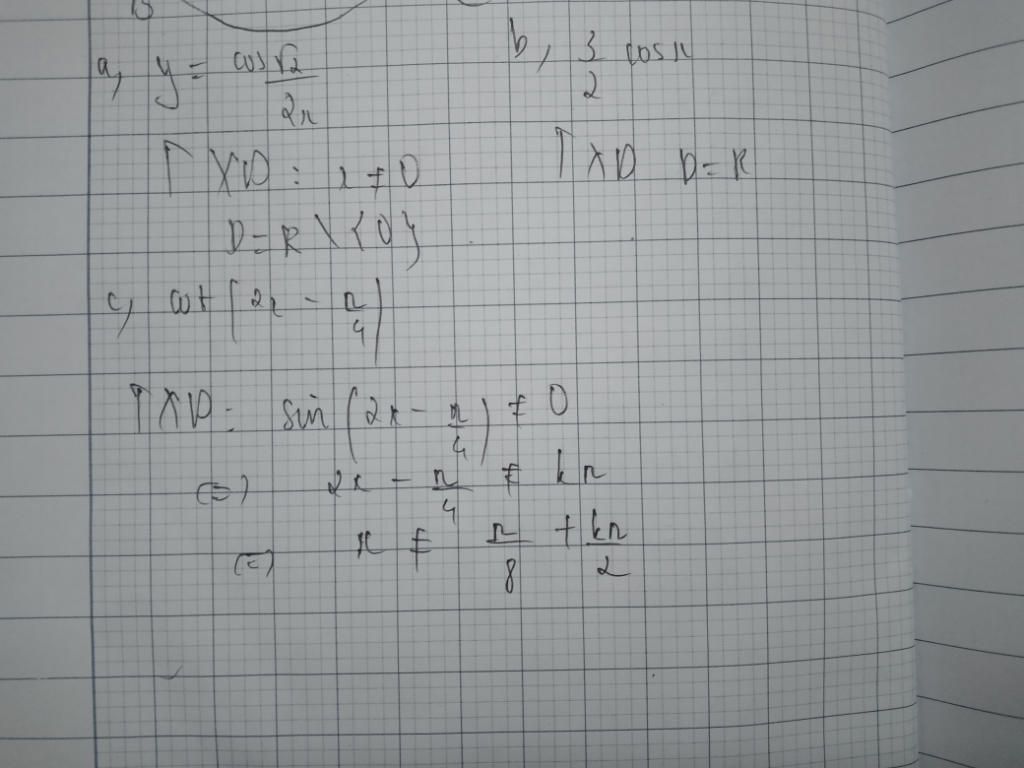 a, y = cos √2/2x
b, 3/2 cosx
TXĐ : x ≠ 0
TXĐ D = R
D = R \ {0}
c, cot (2x - π/4)
TXĐ : sin (2x - π/4) ≠ 0
(=) 2x - π/4 ≠ kπ
(=) x ≠ π/8 + kπ/2